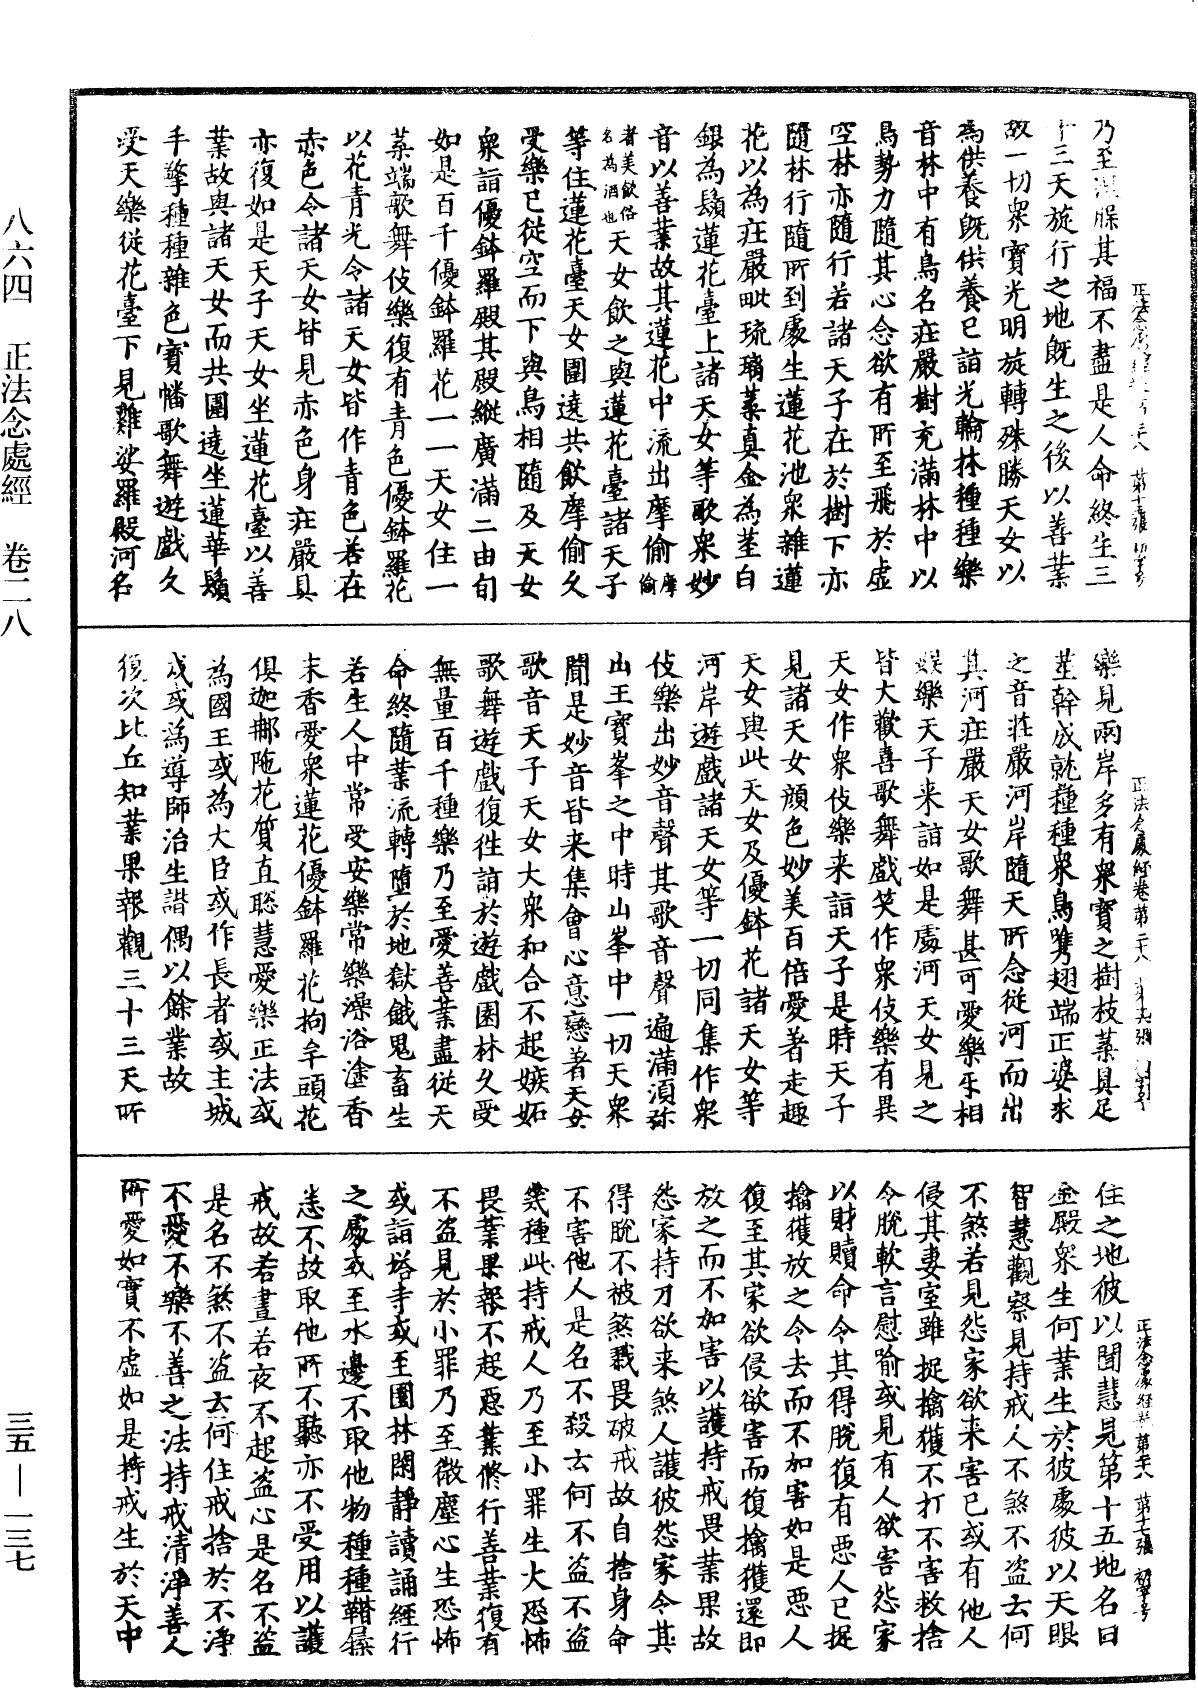 乃至涅槃其福不盡是人命終生三
十三天旋行之地既生之後以善業
故一切衆寶光明旋轉殊勝天女以
為供養既供養已詣光輪林種種樂
音林中有鳥名莊嚴樹充滿林中以
鳥勢力隨其心念欲有所至飛於虛
空林亦隨行若諸天子在於樹下亦
隨林行隨所到處生蓮花池衆雜蓮
花以為莊嚴毗琉璃葉真金為莖白
銀為鬚蓮花臺上諸天女等歌衆妙
音以善業故其蓮花中流出摩偷摩偷
者美飲俗名為酒也天女飲之與蓮花臺諸天子
等住蓮花臺天女圍遶共飲摩偷久
受樂已從空而下與鳥相隨及天女
衆詣優鉢羅殿其殿縱廣滿二由旬
如是百千優鉢羅花一一天女住一
葉端歌舞伎樂復有青色優鉢羅花
以花青光令諸天女皆作青色若在
赤色令諸天女皆見赤色身莊嚴具
亦復如是天子天女坐蓮花臺以善
業故與諸天女而共圍遶坐蓮華鬚
手擎種種雜色寶幡歌舞遊戲久
受天樂從花臺下見雞娑羅殿河名
樂見兩岸多有衆寶之樹枝葉具足
莖幹成就種種衆鳥雙翅端正婆求
之音莊嚴河岸隨天所念從河而出
其河莊嚴天女歌舞甚可愛樂牙相
娛樂天子来詣如是處河天女見之
皆大歡喜歌舞戲笑作衆伎樂有異
天女作衆伎樂来詣天子是時天子
見諸天女顔色妙美百倍愛著走趣
天女與此天女及優鉢花諸天女等
河岸遊戲諸天女等一切同集作衆
伎樂出妙音聲其歌音聲遍滿湏弥
山王寶峯之中時山峯中一切天衆
聞是妙音皆来集會心意戀著天女
歌音天子天女大衆和合不起嫉妬
歌舞遊戲復往詣於遊戲園林久受
無量百千種樂乃至愛善業盡從天
命終隨業流轉墮於地獄餓鬼畜生
若生人中常受安樂常樂澡浴塗香
末香愛衆蓮花優鉢羅花拘牟頭花
俱迦那陁花質直聡慧愛樂正法或
為國王或為大臣或作長者或主城
戍或為導師治生諧偶以餘業故
復次比丘知業果報觀三十三天所
住之地彼以聞慧見第十五地名曰
金殿衆生何業生於彼處彼以天眼
智慧觀察見持戒人不煞不盜云何
不煞若見怨家欲来害已或有他人
侵其妻室雖捉擒獲不打不害救捨
令脫軟言慰喻或見有人欲害怨家
以財贖命令其得脫復有惡人已捉
擒獲放之令去而不加害如是惡人
復至其家欲侵欲害而復擒獲還即
放之而不加害以護持戒畏業果故
怨家持刀欲来煞人護彼怨家令其
得脫不被煞戮畏破戒故自捨身命
不害他人是名不殺云何不盜不盜
幾種此持戒人乃至小罪生大恐怖
畏業果報不起惡業修行善業復有
不盜見於小罪乃至微塵心生恐怖
或詣塔寺或至園林閑靜讀誦經行
之處或至水邊不取他物種種鞜屣
恙不故取他所不聽亦不受用以護
戒故若晝若夜不起盜心是名不盜
是名不煞不盜云何住戒捨於不淨
不愛不樂不善之法持戒清淨善人
所愛如實不虛如是持戒生於天中
正法念處經卷第二八　第十六張
正法念處經卷第二八　第十七張　初字号
八六四　正法念處經　卷二八
三五—一三七